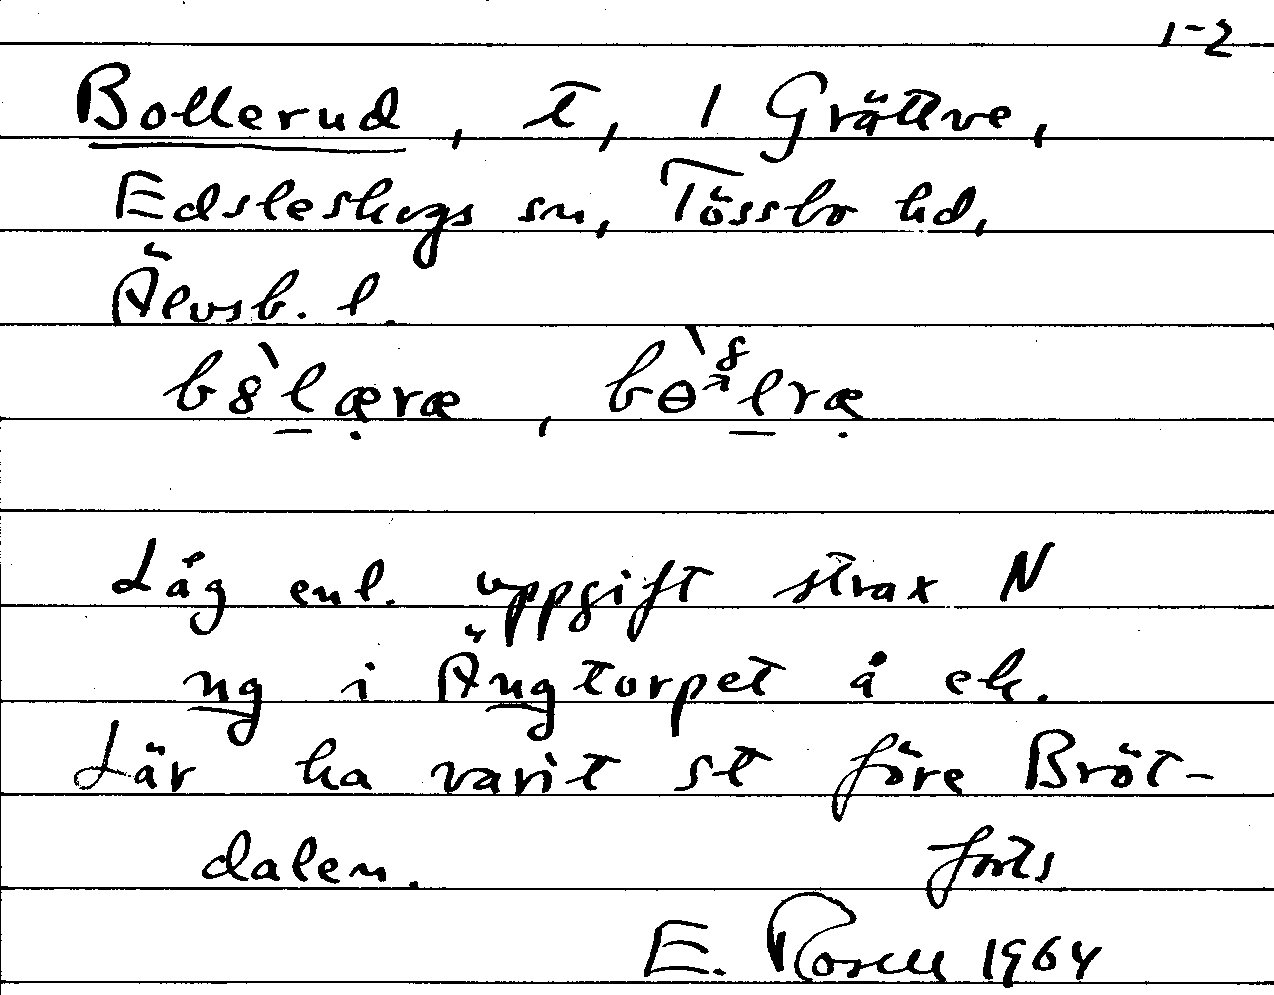 1-2
Bollerud, t, 1 Grättve,
Edsleskogs sn, Tössbo hd,
Älvsb. l.
Låg enl. uppgift strax N
ng i Ängtorpet å ek.
Lär ha varit st före Bröt-
dalen. forts
E. Rosell 1964